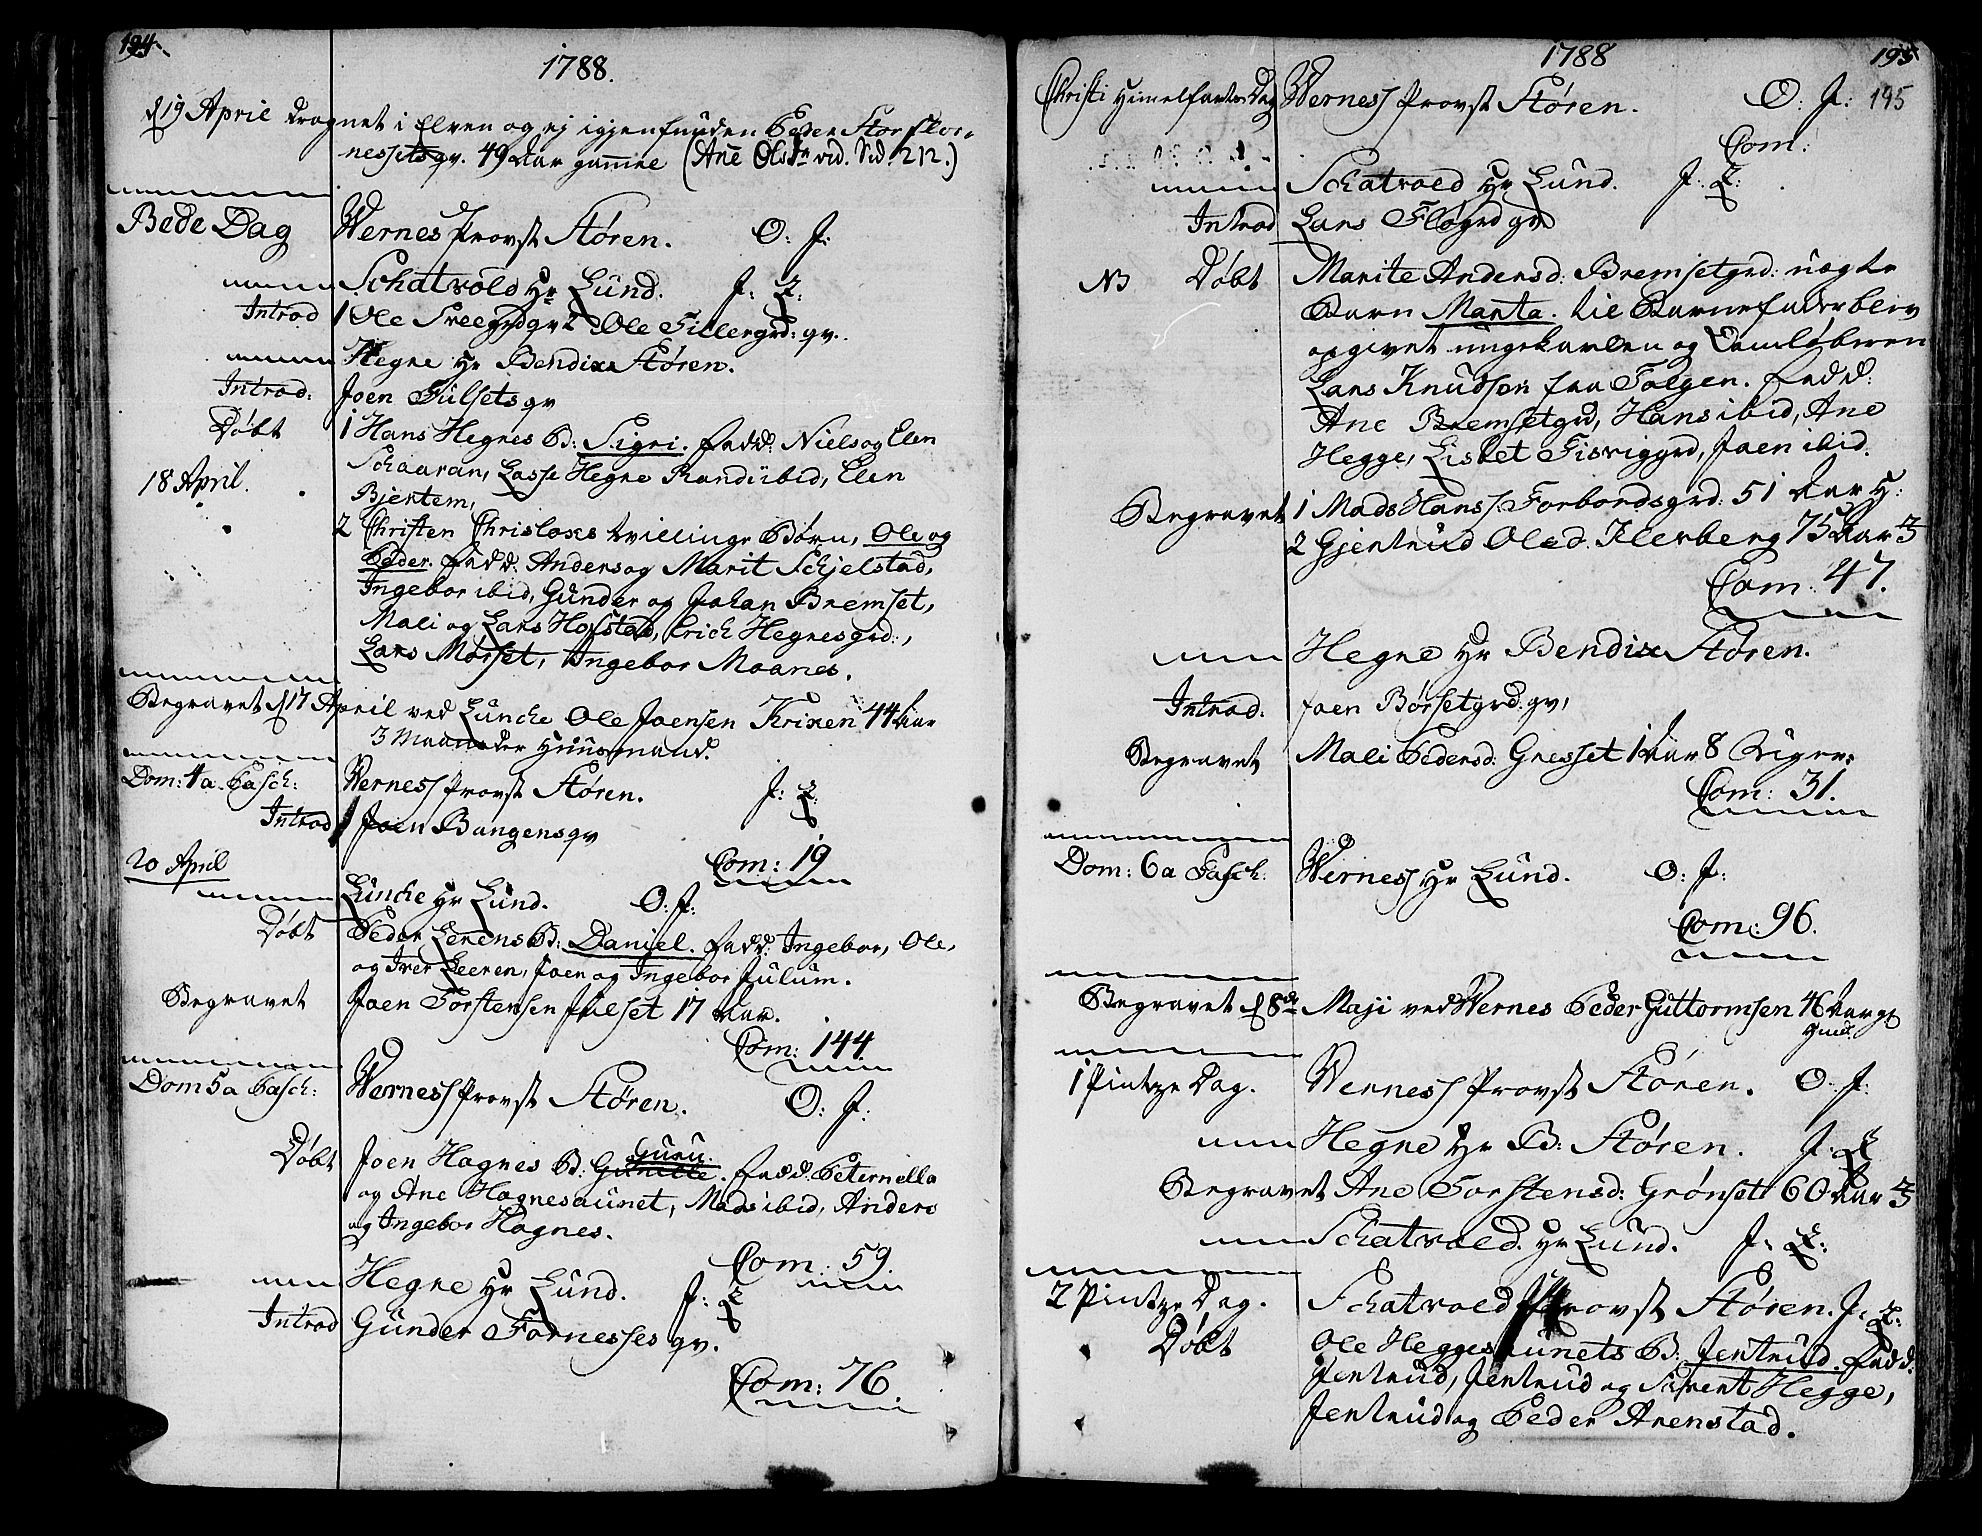 194
1788.
d 19 April drognet i Elven og ej igjenfunden Peder Storflor-
nessets qv. 49 Aar gamme (Ane Olsd. vid. Sid. 212.)
Bede Dag Wernes Provst Støren. O: J:
Schatvold Hr Lund. J: L:
Introd 1 Ole Svee grd qv 2 Ole Fillergrd: qv.
Hegne Hr Bendix Støren.
Introd: Joen Fulsets qv
Døbt 1 Hans Hegnes B: Sigri. Fadd: Niels og Elen
Schaaran, Lasse Hegne Randi ibid, Elen
18 April.
Bjertem,
2 Christen Chrisloxes tvillinge Børn, Ole og
Peder. Fadd: Anders og Marit Schjelstad,
Ingebor ibid, Gunder og Johan Bremset,
Mali og Lars Hofstad, Erich Hegnesgrd:,
Lars Morset, Ingebor Moanes.
Begravet d 17 April ved Lunche Ole Joensen Krixen 44 Aar
3 Maaneder Huusmand.
Dom: 4 a Pasch: Werness Provst Støren. J: L:
Introd 1 Joen Bangens qv
Com: 19
20 April
Lunche Hr Lund. O: J:
Døbt Peder Lerens B: Daniel. Fadd: Ingebor, Ole,
og Iver Leeren, Joen og Ingebor Julum.
Begravet Joen Torstensen Julset 17 Aar.
Com: 144
Dom 5 a Pasch: Werness Provst Støren. O: J:
Guru.
Døbt Joen Hognes B: Gunille. Fadd: Peternella
og Ane Hognesaunet, Mads ibid, Anders
og Ingebor Hognes.
Com: 59.
Hegne Hr Lund. J: L
Introd Gunder Fornesses qv.
Com: 76.
1788 195
Christi Himelfarts Dag Werness Provst Støren. O: J: 195
Com:
Schatvold Hr Lund. J: L:
Introd Lars Fløgrd qv
NB Døbt Marite Andersd: Bremsetgrd: uægte
Barn Marta. til Barnefader blev
opgivet ungekarlen og Landløberen
Lars Knudsen fra Tolgen. Fadd:
Ane Bremsetgrd, Hans ibid, Ane
Hegge, Lisbet Fisviggrd, Joen ibid.
Begravet 1 Mads Hanss. Forbordsgrd: 51 Aar H:
2 Gjertrud Olsd. Ilerberg 75 Aar 3
Com: 47.
Hegne Hr Bendix Støren.
Introd. Joen Børsetgrd: qv,
Begravet Mali Pedersd: Gresset 1 Aar 8 Uger.
Com: 31.
Dom: 6 a Pasch: Werness Hr Lund. O: J:
Com: 96.
Begravet d 8de Maji ved Wernes Peder Guttormsen 46 Aar g
1 Pintze Dag. Werness Provst Støren. O: J:
Hegne Hr B: Støren. J: L
Begravet Ane Torstensd: Grønset 60 Aar 3
Schatvold. Hr Lund. J: L:
2 Pintze Dag. Schatvold Provst Støren. J: L:
Døbt Ole Heggesaunets B: Jertrud. Fadd:
Jertrud, Jertrud og Sivert Hegge,
Jertrud og Peder Arenstad.